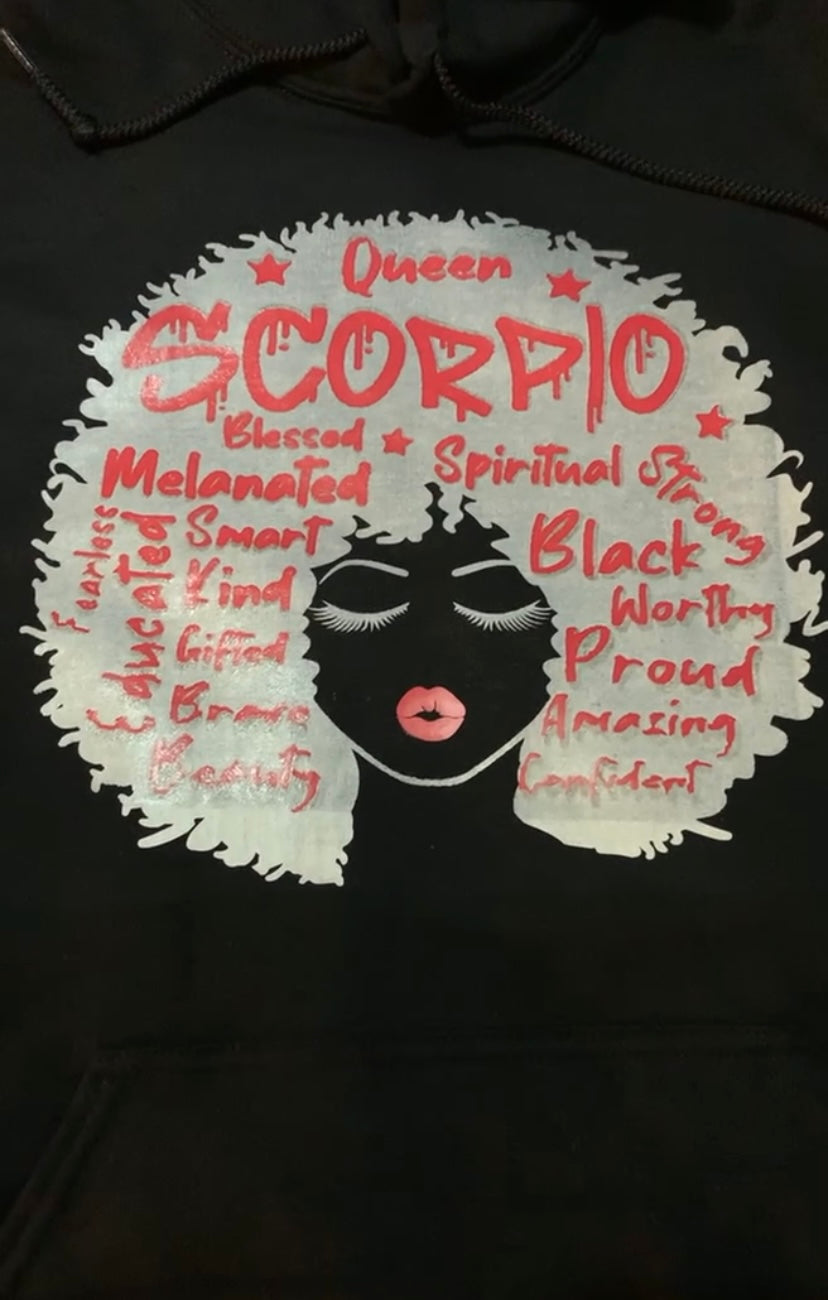 Queen
SCORPIO
Blessed
Melanated
Spiritual
Strong
Fearless
Educated
Smart
Kind
Gifted
Brave
Beauty
Black
Worthy
Proud
Amazing
Confident